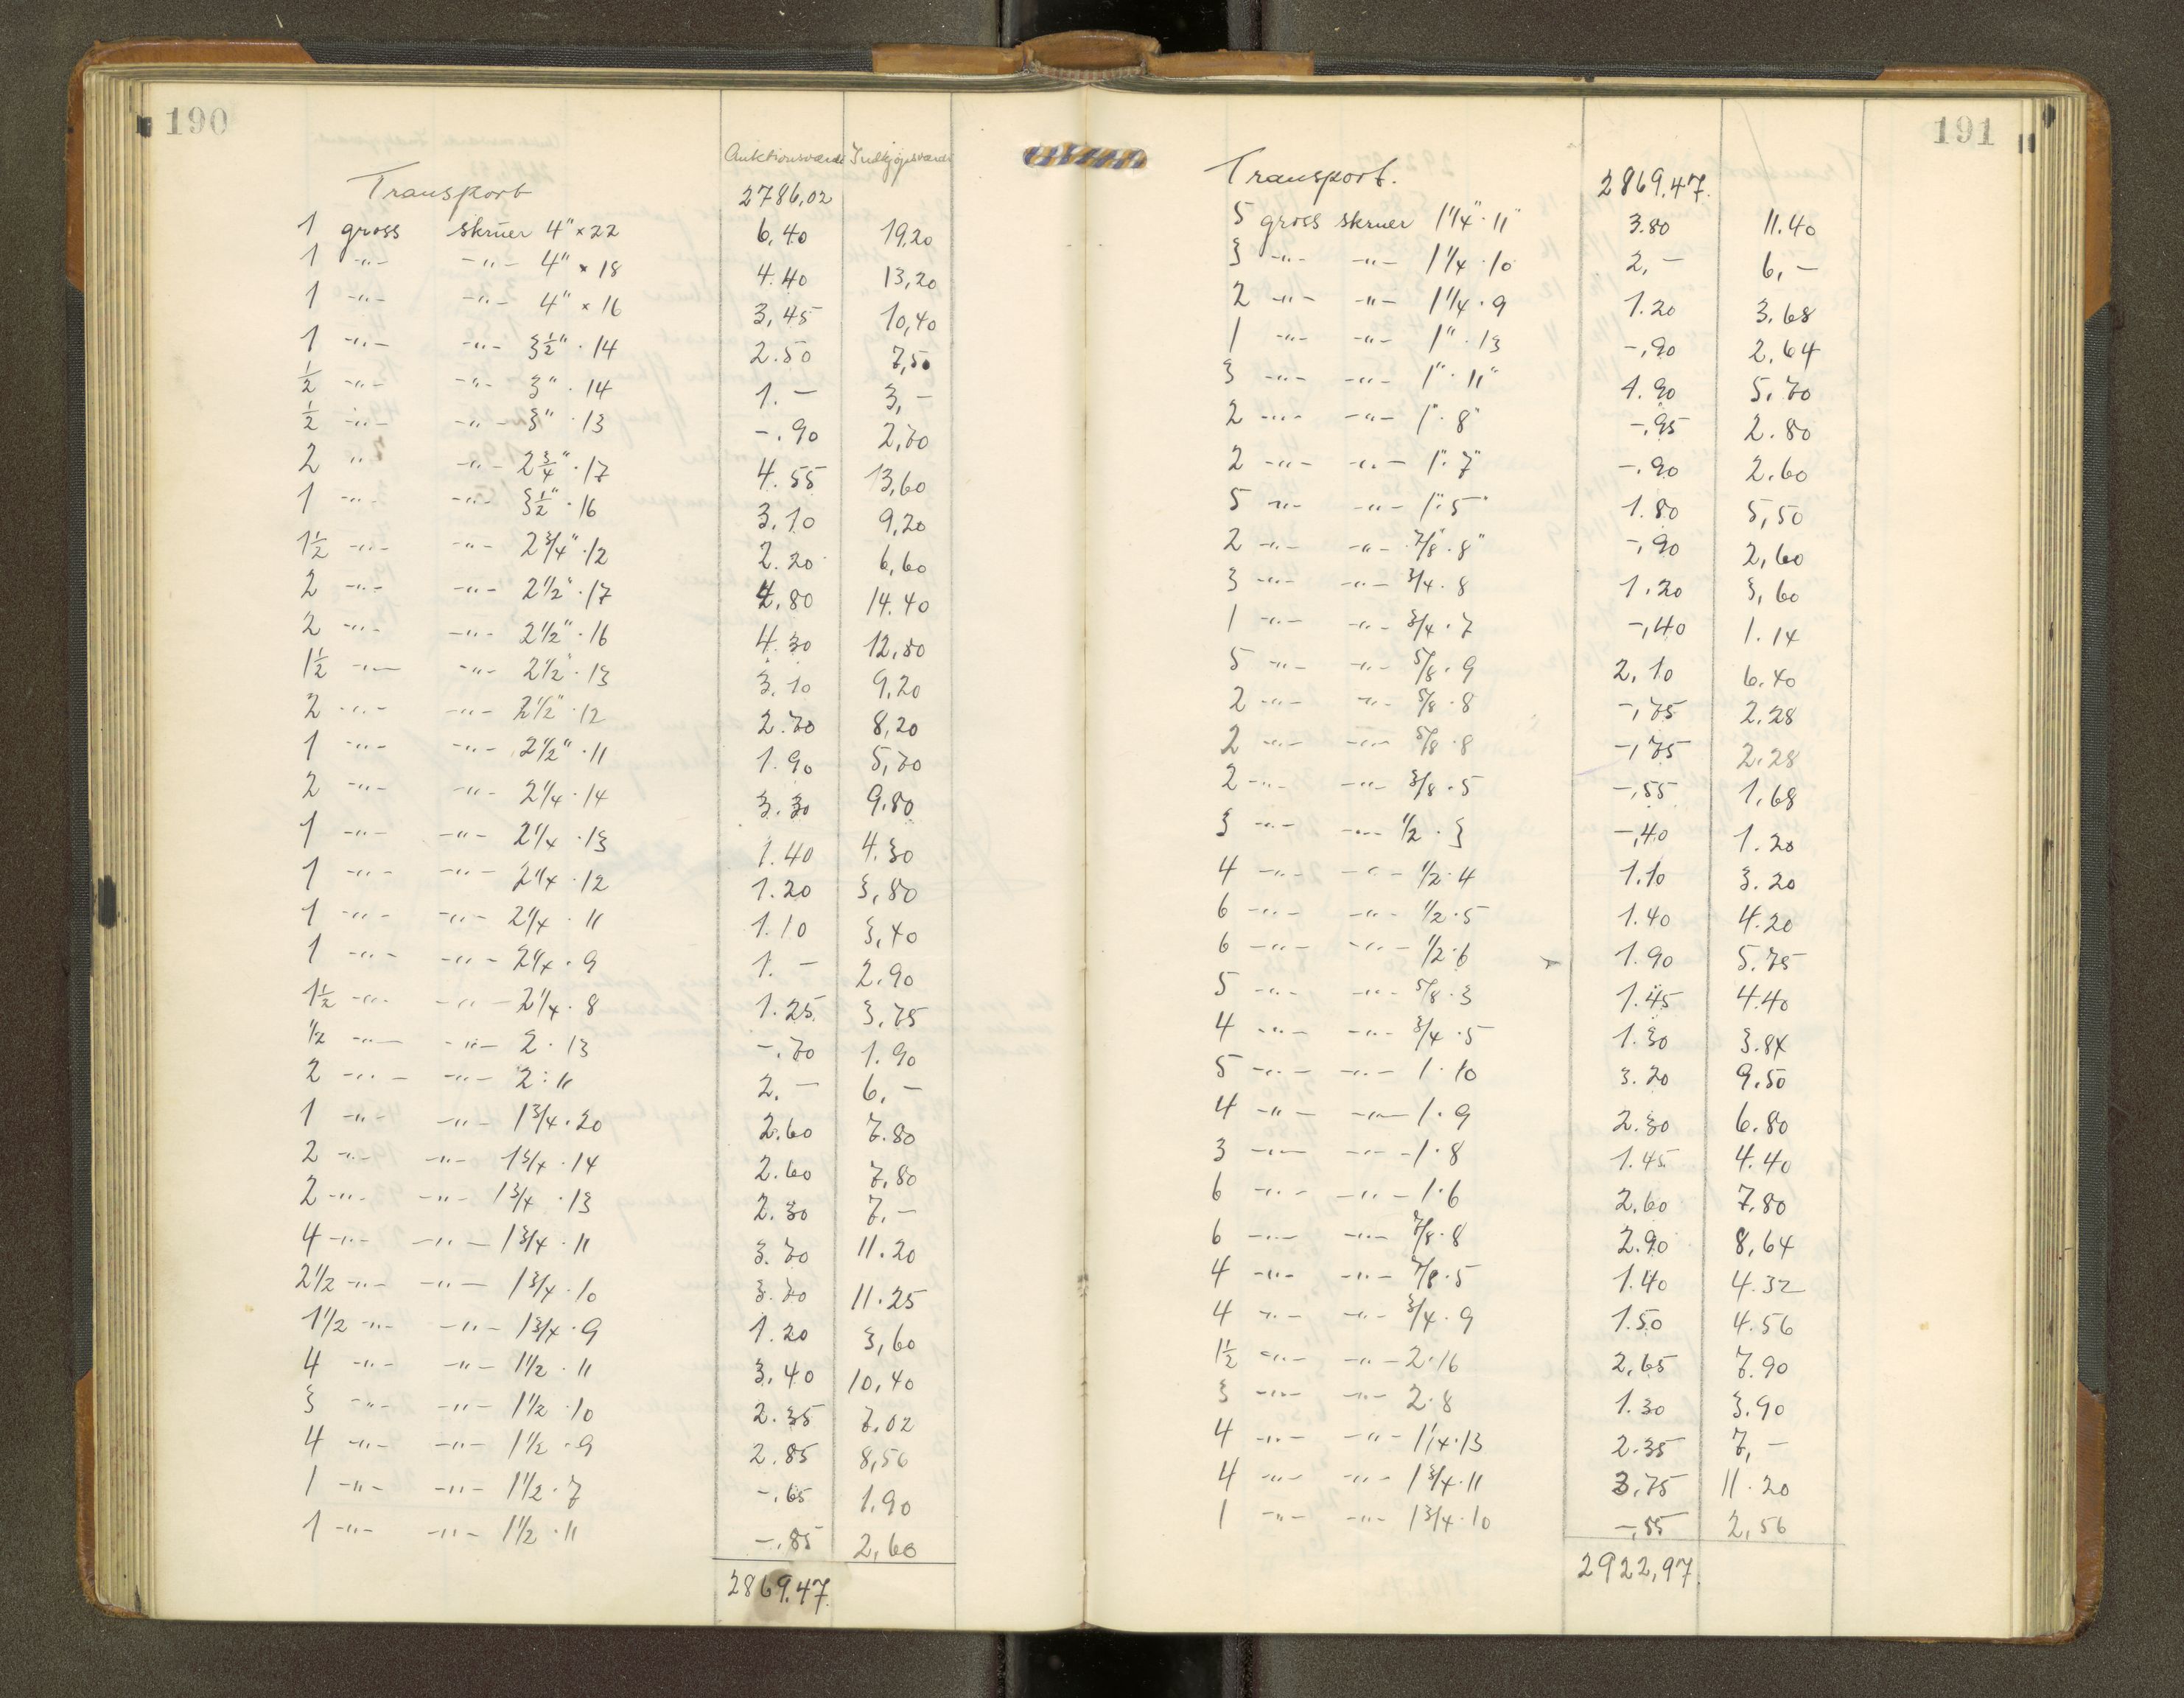 190
Auktionsværdi Indkjøpsværdi
Transport 2786,02
1 gross skruer 4" × 22 6,40 19,20
1 -"- -"- 4" × 18 4.40 13,20
1 -"- -"- 4" × 16 3,45 10,40
1 -"- -"- 3½" · 14 2.50 7,50
½ -"- -"- 3" · 14 1.- 3,-
½ -"- -"- 3" · 13 -.90 2,70
2 " -"- 2¾" · 17 4.55 13,60
1 -"- -"- 3½" · 16 3.10 9,20
1½ -"- -"- 2¾" · 12 2.20 6,60
2 -"- -"- 2½" · 17 4,80 14.40
2 -"- -"- 2½" · 16 4.30 12,80
1½ -"- -"- 2½" · 13 3.10 9,20
2 -"- -"- 2½" · 12 2.70 8,20
1 -"- -"- 2½" · 11 1.90 5,70
2 -"- -"- 2¼ · 14 3.30 9.80
1 -"- -"- 2¼ · 13 1.40 4.30
1 -"- -"- 2¼ · 12 1.20 3,80
1 -"- -"- 2¼ · 11 1.10 3,40
1 -"- -"- 2¼ · 9 1.- 2.90
1½ -"- -"- 2¼ · 8 1.25 3,75
½ -"- -"- 2 · 13 -.70 1.90
2 -"- -"- 2 · 11 2.- 6.-
1 -"- -"- 1¾ · 20 2.60 7.80
2 -"- -"- 1¾ · 14 2.60 7,80
2 -"- -"- 1¾ · 13 2.30 7.-
4 -"- -"- 1¾ · 11 3.70 11.20
2½ -"- -"- 1¾ · 10 3.70 11.25
1½ -"- -"- 1¾ · 9 1.20 3,60
4 -"- -"- 1½ · 11 3.40 10,40
3 -"- -"- 1½ · 10 2.35 7.02
4 -"- -"- 1½ · 9 2.85 8,56
1 -"- -"- 1½ · 7 -.65 1.90
1 -"- -"- 1½ · 11 -.85 2,60
2869.47
191
Transport. 2869.47.
5 gross skruer 1¼" · 11" 3.80 11.40
3 -"- -"- 1¼ · 10 2,- 6,-
2 -"- -"- 1¼ · 9 1.20 3,68
1 -"- -"- 1" · 13 -,90 2,64
3 -"- -"- 1" · 11" 1.90 5,70
2 -"- -"- 1" · 8" -,95 2.80
2 -"- -"- 1" · 7" -.90 2.60
5 -"- -"- 1" · 5" 1.80 5,50
2 -"- -"- 7/8" · 8" -,90 2,60
3 -"- -"- ¾ · 8 1.20 3,60
1 -"- -"- ¾ · 7 -,40 1.14
5 -"- -"- 5/8 · 9 2,10 6.40
2 -"- -"- 5/8 · 8 -,75 2,28
2 -"- -"- 5/8 · 8 -,75 2.28
2 -"- -"- 3/8 · 5 -,55 1,68
3 -"- -"- ½ · 3 -,40 1.20
4 -"- -"- ½ · 4 1.10 3.20
6 -"- -"- ½ · 5 1.40 4.20
6 -"- -"- ½ · 6 1.90 5.75
5 -"- -"- 5/8 · 3 1.45 4.40
4 -"- -"- ¾ · 5 1.30 3.84
5 -"- -"- 1 · 10 3.20 9.50
4 -"- -"- 1 · 9 2.30 6.80
3 -"- -"- 1 · 8 1.45 4.40
6 -"- -"- 1 · 6 2,60 7,80
6 -"- -"- 7/8 · 8 2.90 8,64
4 -"- -"- 7/8 · 5 1.40 4.32
4 -"- -"- ¾ · 9 1.50 4.56
1½ -"- -"- 2 · 16 2,65 7.90
3 -"- -"- 2 · 8 1.30 3.90
4 -"- -"- 1¼ · 13 2.35 7,-
4 -"- -"- 1¾ · 11 3,75 11.20
1 -"- -"- 1¾ · 10 -,85 2,56
2922,97.